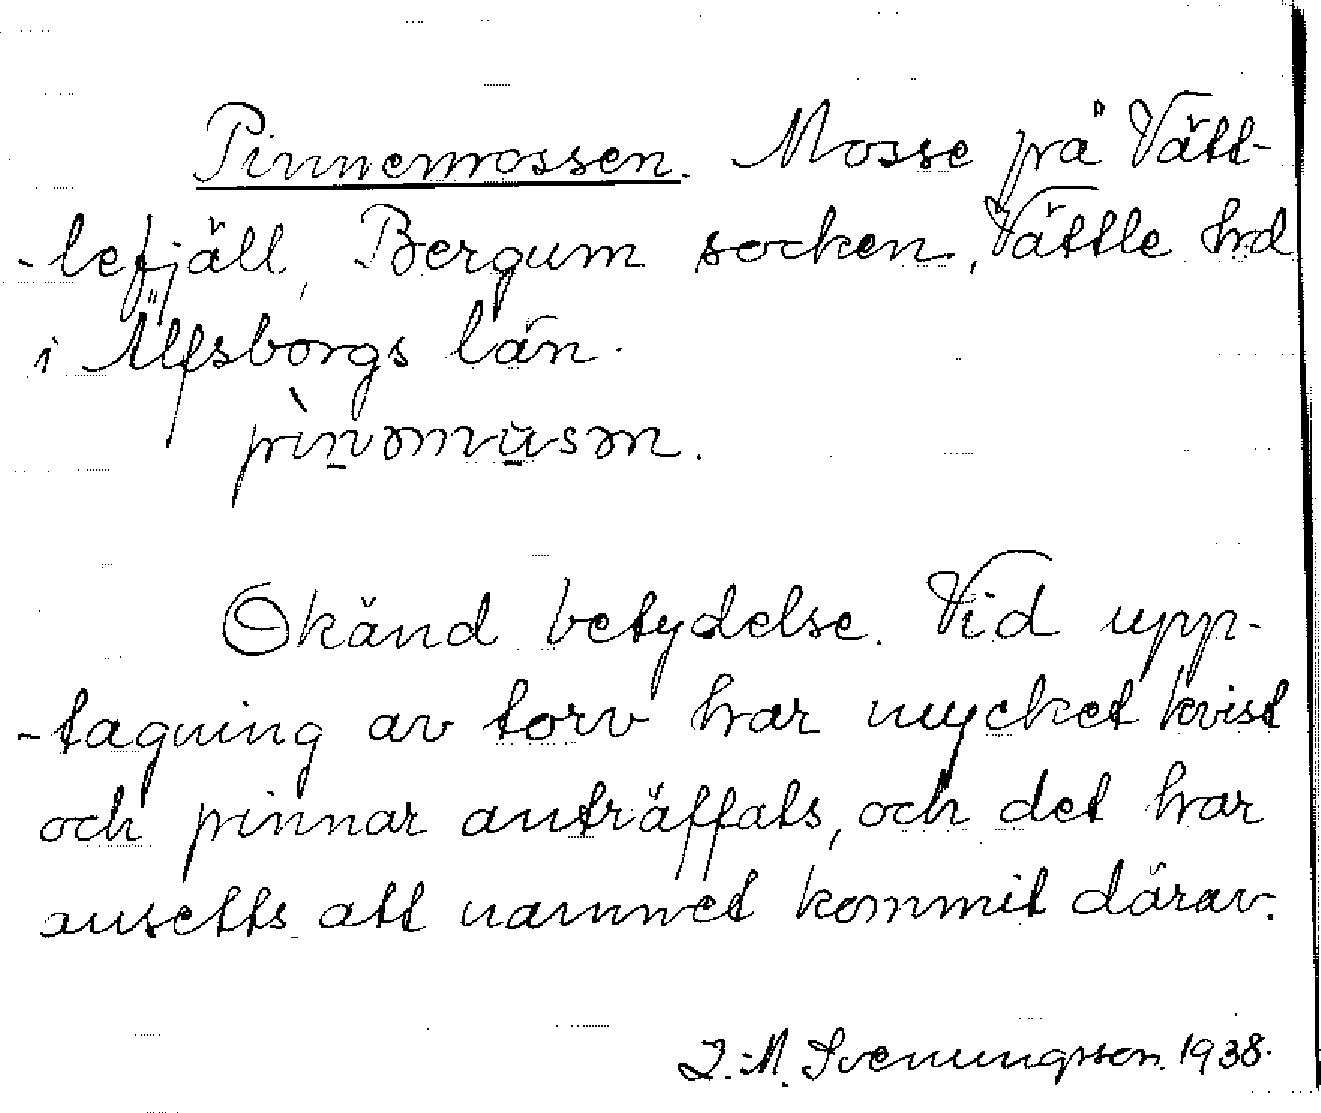 Pinnemossen. Mosse på Vätt-
-lefjäll, Bergum socken, Vättle hd
i Älfsborgs län.
pìnəmusən.
Okänd betydelse. Vid upp-
-tagning av torv har mycket kvist
och pinnar anträffats, och det har
ansetts att namnet kommit därav.
J. M. Svenungsson 1938.